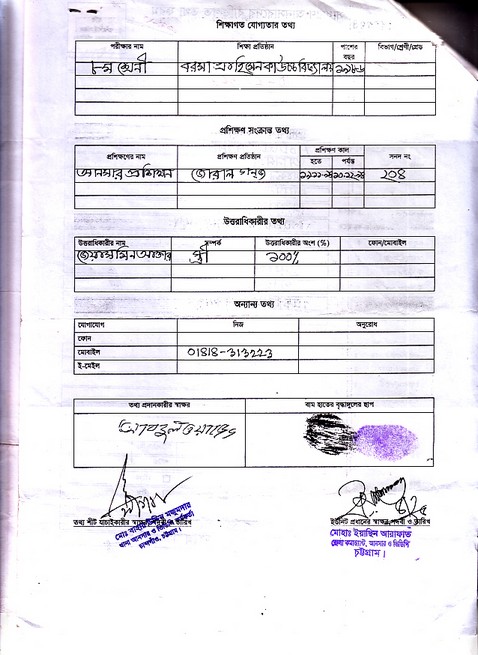 শিক্ষাগত যোগ্যতার তথ্য
পরীক্ষার নাম শিক্ষা প্রতিষ্ঠান পাশের বছর বিভাগ/শ্রেণী/গ্রেড
৮ম শ্রেনী বরমা উচ্চ বিদ্যালয়
প্রশিক্ষণ সংক্রান্ত তথ্য
প্রশিক্ষণের নাম প্রশিক্ষণ প্রতিষ্ঠান প্রশিক্ষণ কাল সনদ নং
হতে পর্যন্ত
আনসার প্রশিক্ষন ২০৪
উত্তরাধিকারীর তথ্য
উত্তরাধিকারীর নাম সম্পর্ক উত্তরাধিকারীর অংশ (%) ফোন/মোবাইল
আক্তার স্ত্রী ১০০%
অন্যান্য তথ্য
যোগাযোগ নিজ অনুরোধ
ফোন
মোবাইল 01818-313223
ই-মেইল
তথ্য প্রদানকারীর স্বাক্ষর বাম হাতের বৃদ্ধাঙ্গুলের ছাপ
আবদুল ওয়াহেদ
তথ্য শীট যাচাইকারীর স্বাক্ষর ও তারিখ ইউনিট প্রধানের স্বাক্ষর পদবী ও তারিখ
মোহাঃ ইয়াছিন আরাফাত
জেলা কমান্ড্যান্ট, আনসার ও ভিডিপি
চট্টগ্রাম।